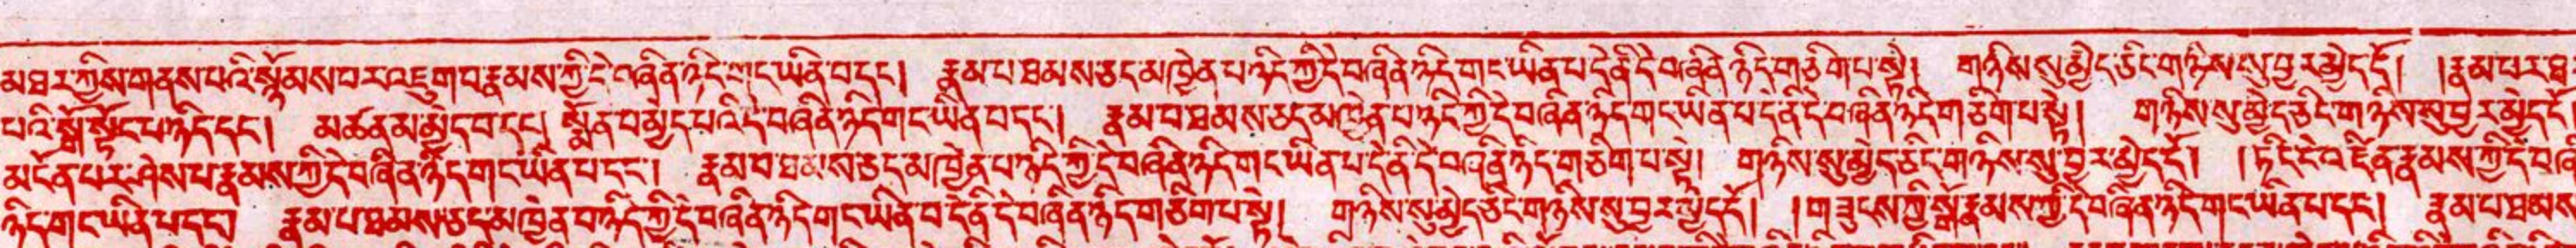 མཐར་གྱིས་གནས་པའི་སྙོམས་པར་འཇུག་པ་རྣམས་ཀྱི་དེ་བཞིན་ཉིད་གང་ཡིན་པ་དང༌། རྣམ་པ་ཐམས་ཅད་མཁྱེན་པ་ཉིད་ཀྱི་དེ་བཞིན་ཉིད་གང་ཡིན་པ་དེ་ནི་དེ་བཞིན་ཉིད་གཅིག་པ་སྟེ། གཉིས་སུ་མྱེད་ཅིང་གཉིས་སུ་བྱར་མྱེད་དོ། །རྣམ་པར་ཐར་
པའི་སྒོ་སྟོང་པ་ཉིད་དང༌། མཚན་མ་མྱེད་པ་དང༌། སྨོན་པ་མྱེད་པའི་དེ་བཞིན་ཉིད་གང་ཡིན་པ་དང༌། རྣམ་པ་ཐམས་ཅད་མཁྱེན་པ་ཉིད་ཀྱི་དེ་བཞིན་ཉིད་གང་ཡིན་པ་དེ་ནི་དེ་བཞིན་ཉིད་གཅིག་པ་སྟེ། གཉིས་སུ་མྱེད་ཅིང་གཉིས་སུ་བྱར་མྱེད་དོ
མངོན་པར་ཤེས་པ་རྣམས་ཀྱི་དེ་བཞིན་ཉིད་གང་ཡིན་པ་དང༌། རྣམ་པ་ཐམས་ཅད་མཁྱེན་པ་ཉིད་ཀྱི་དེ་བཞིན་ཉིད་གང་ཡིན་པ་དེ་ནི་དེ་བཞིན་ཉིད་གཅིག་པ་སྟེ། གཉིས་སུ་མྱེད་ཅིང་གཉིས་སུ་བྱར་མྱེད་དོ། །ཏིང་ངེ་འཛིན་རྣམས་ཀྱི་དེ་བཞི
ཉིད་གང་ཡིན་པ་དང༌། རྣམ་པ་ཐམས་ཅད་མཁྱེན་པ་ཉིད་ཀྱི་དེ་བཞིན་ཉིད་གང་ཡིན་པ་དེ་ནི་དེ་བཞིན་ཉིད་གཅིག་པ་སྟེ། གཉིས་སུ་མྱེད་ཅིང་གཉིས་སུ་བྱར་མྱེད་དོ། །གཟུངས་ཀྱི་སྒོ་རྣམས་ཀྱི་དེ་བཞིན་ཉིད་གང་ཡིན་པ་དང༌། རྣམ་པ་ཐམས